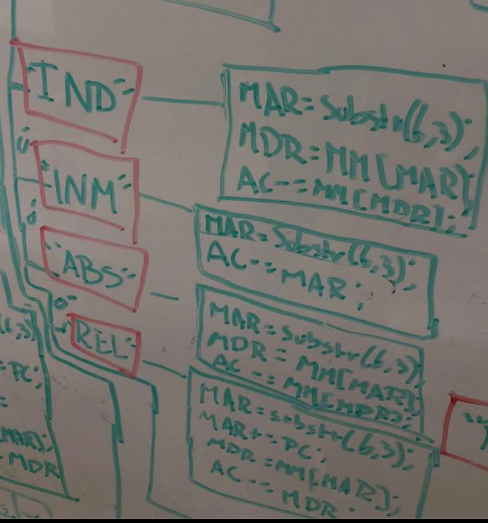 "IND"
MAR=Substr(6,3);
MDR=MM[MAR];
AC-=MM[MDR];
"INM"
MAR=Substr(6,3);
AC-=MAR;
"ABS"
MAR=Substr(6,3);
MDR=MM[MAR];
AC-=MM[MDR];
"REL"
MAR=substr(6,3);
MAR+=PC;
MDR=MM[MAR];
AC-=MDR;
6,3)
=PC;
MAR];
MDR